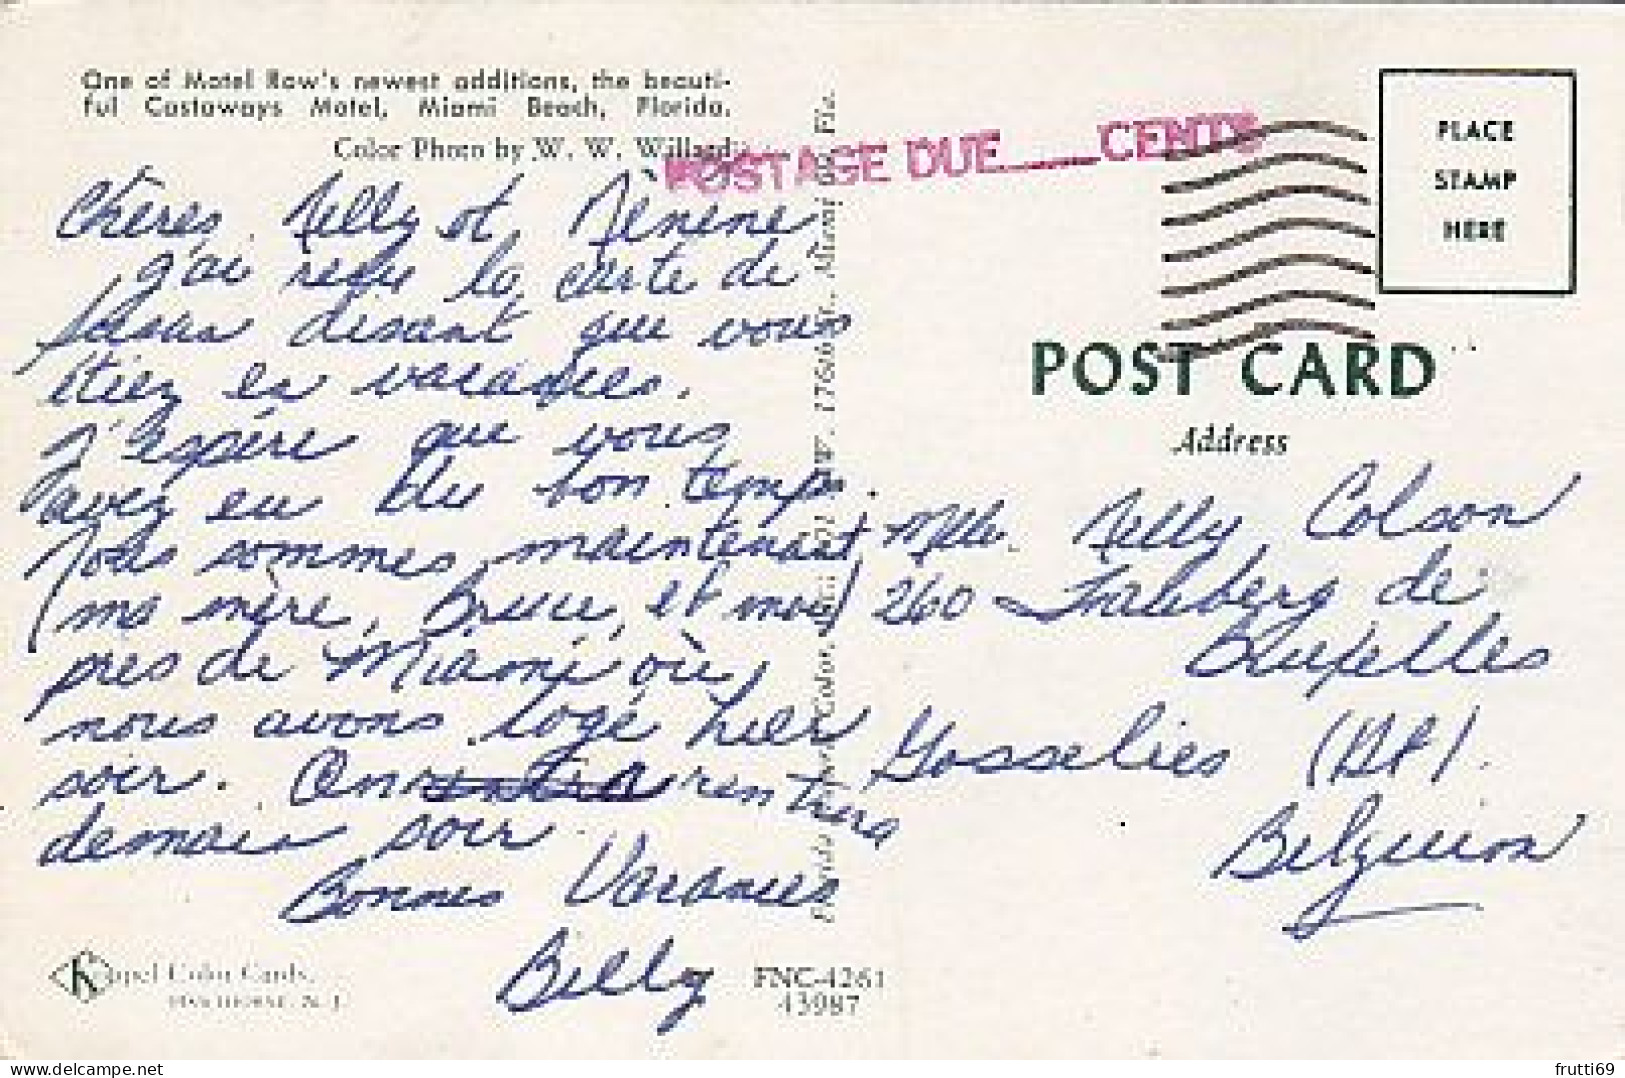 One of Motel Row's newest additions, the beauti-
ful Castaways Motel, Miami Beach, Florida.
Color Photo by W. W. Willard
POSTAGE DUE ___ CENTS
PLACE
STAMP
HERE
POST CARD
Address
Chères Nelly et
j'ai reçu la carte de
disant que vous
étiez en vacances.
J'espère que vous
avez eu du bon temps.
Nous sommes maintenant
(ma mère, Bruce, et moi)
près de Miami où
nous avons logé hier
soir. On rentrera
demain soir.
Bonnes Vacances
Billy
Mlle. Nelly Colson
260 de
Bruxelles
Gosselies (Ht).
Belgium
Kopel Color Cards,
HAWTHORNE, N. J.
FNC-4261
43987
www.delcampe.net
frutti69